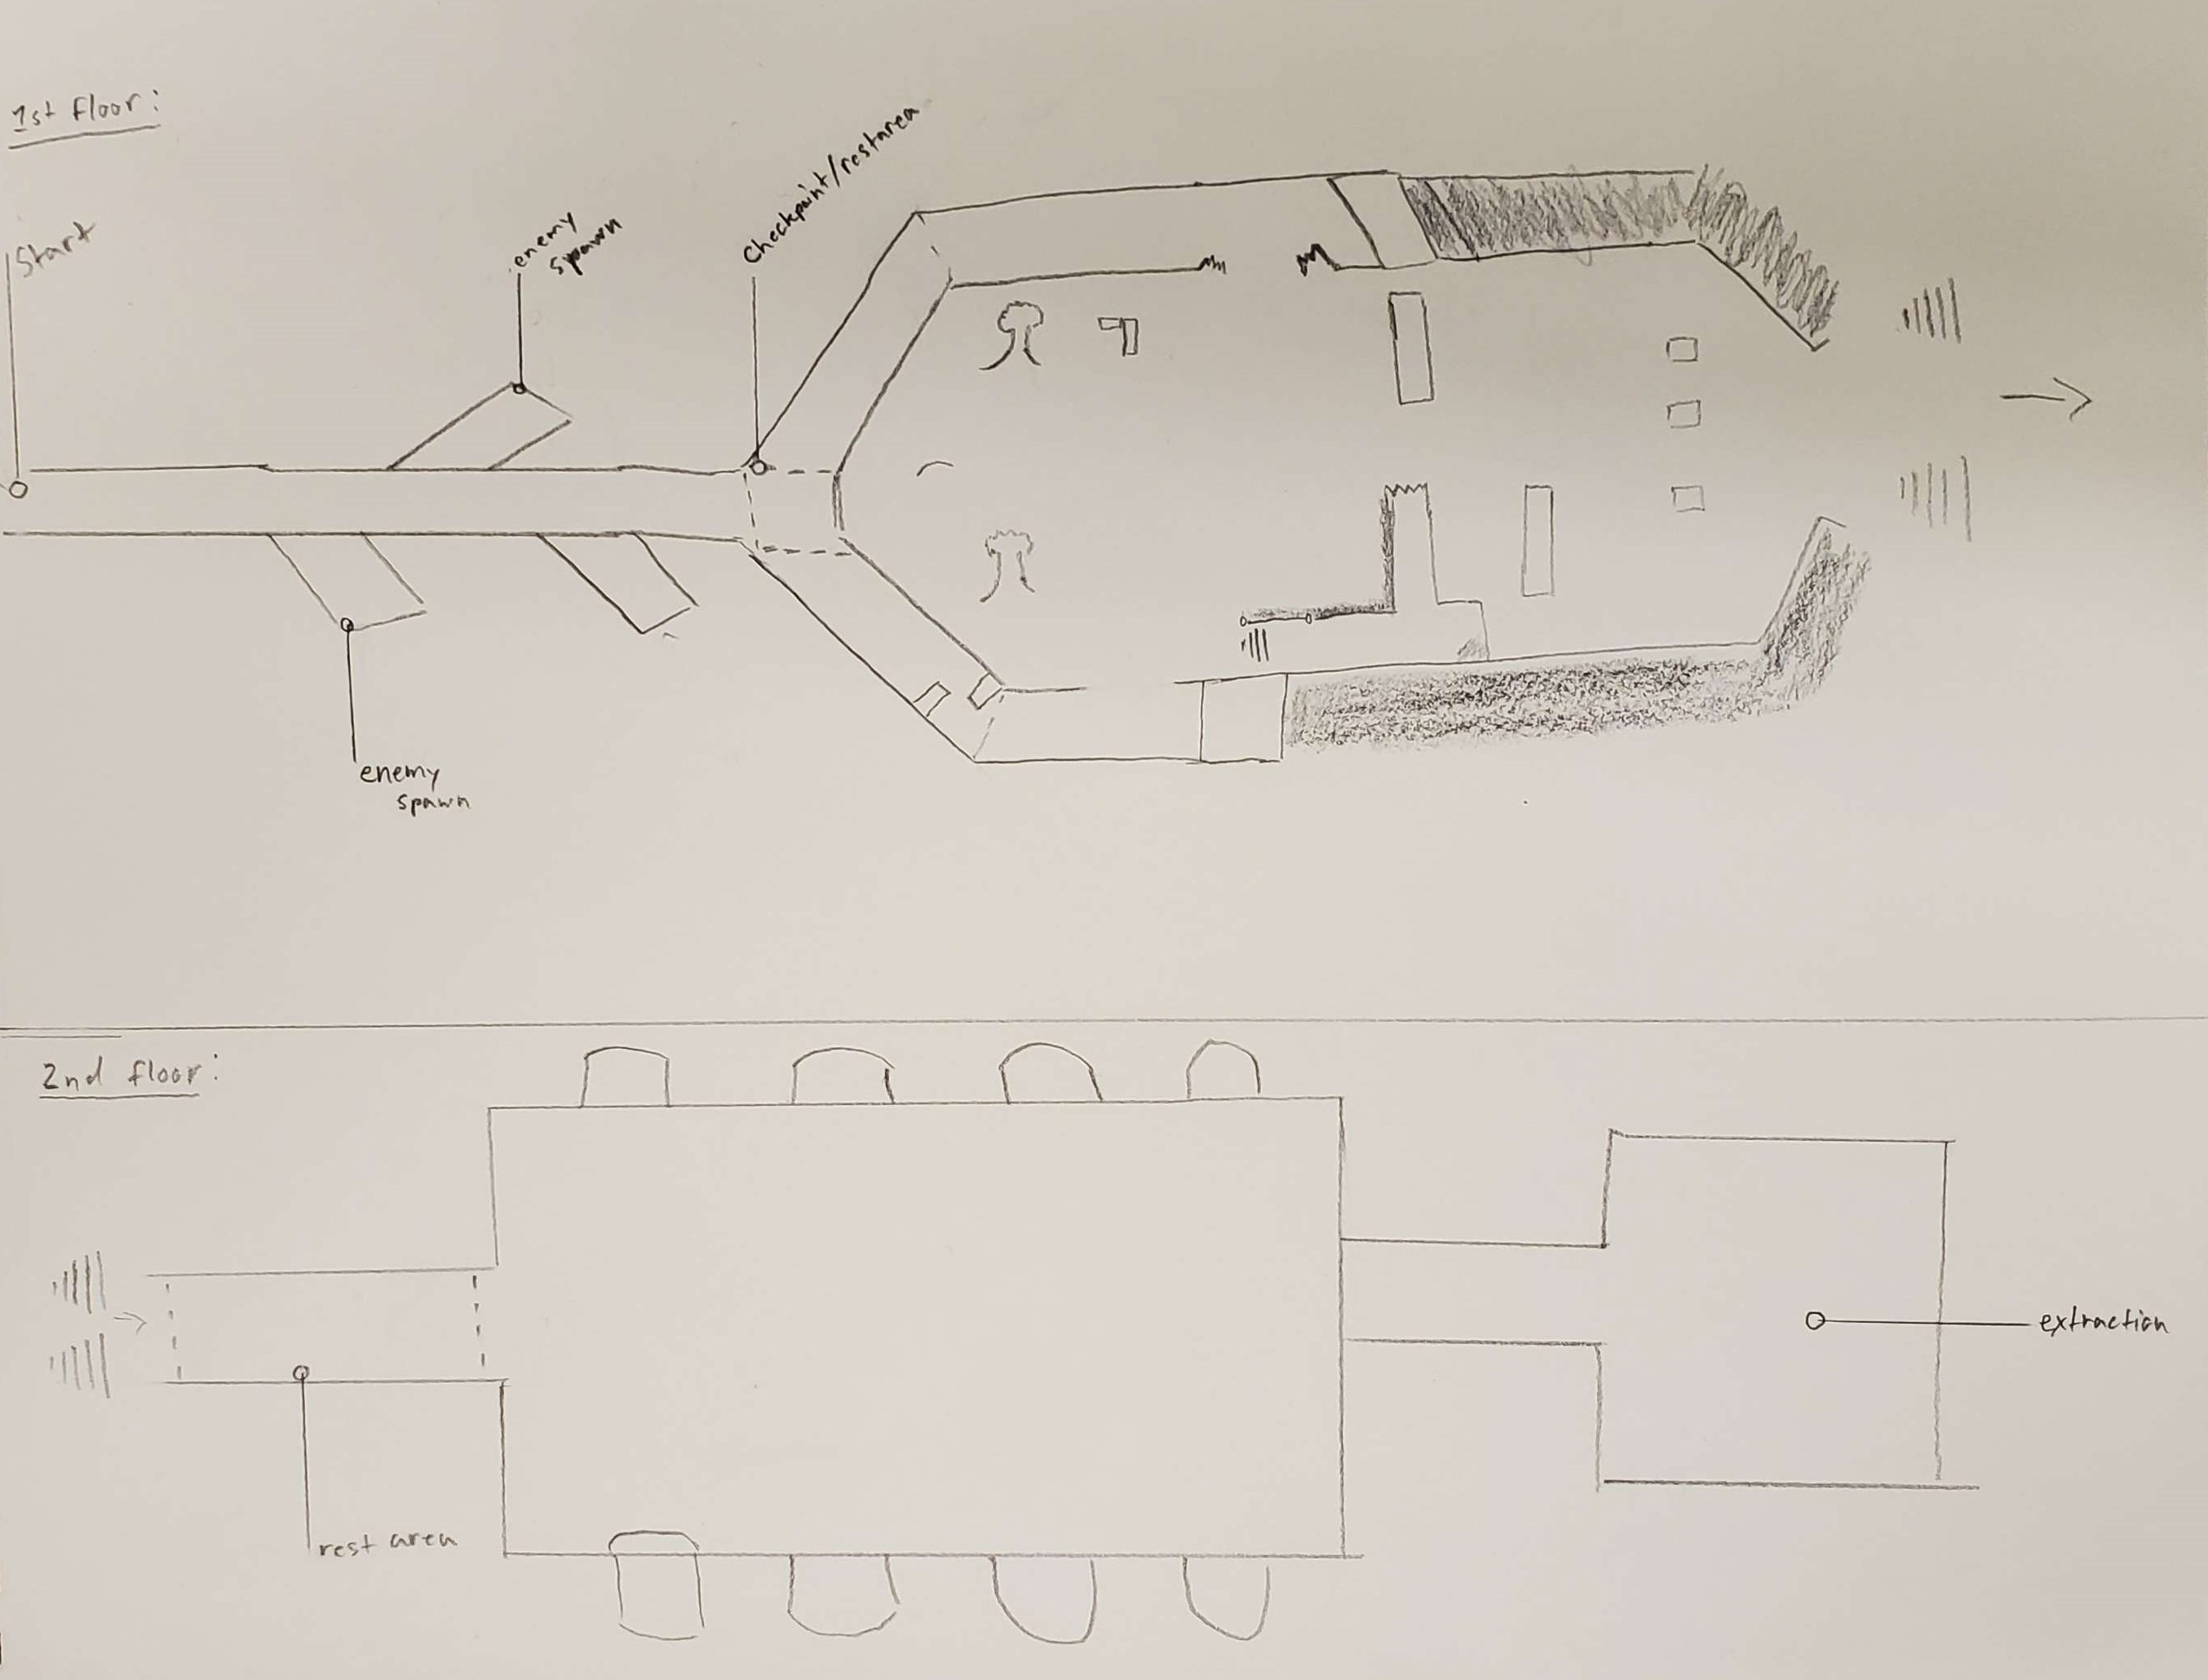 1st floor:
Start
enemy
spawn
Checkpoint/restarea
enemy
spawn
2nd floor:
extraction
rest area